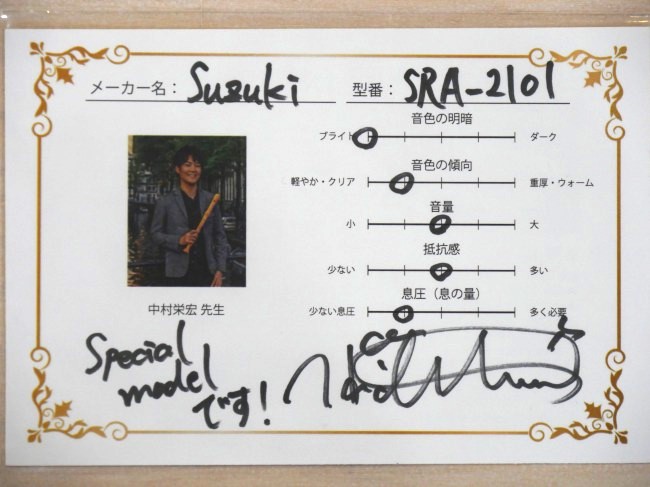 メーカー名： Suzuki 型番： SRA-2101
音色の明暗
ブライト ダーク
音色の傾向
軽やか・クリア 重厚・ウォーム
音量
小 大
抵抗感
少ない 多い
息圧（息の量）
少ない息圧 多く必要
中村栄宏 先生
Special
model
です！